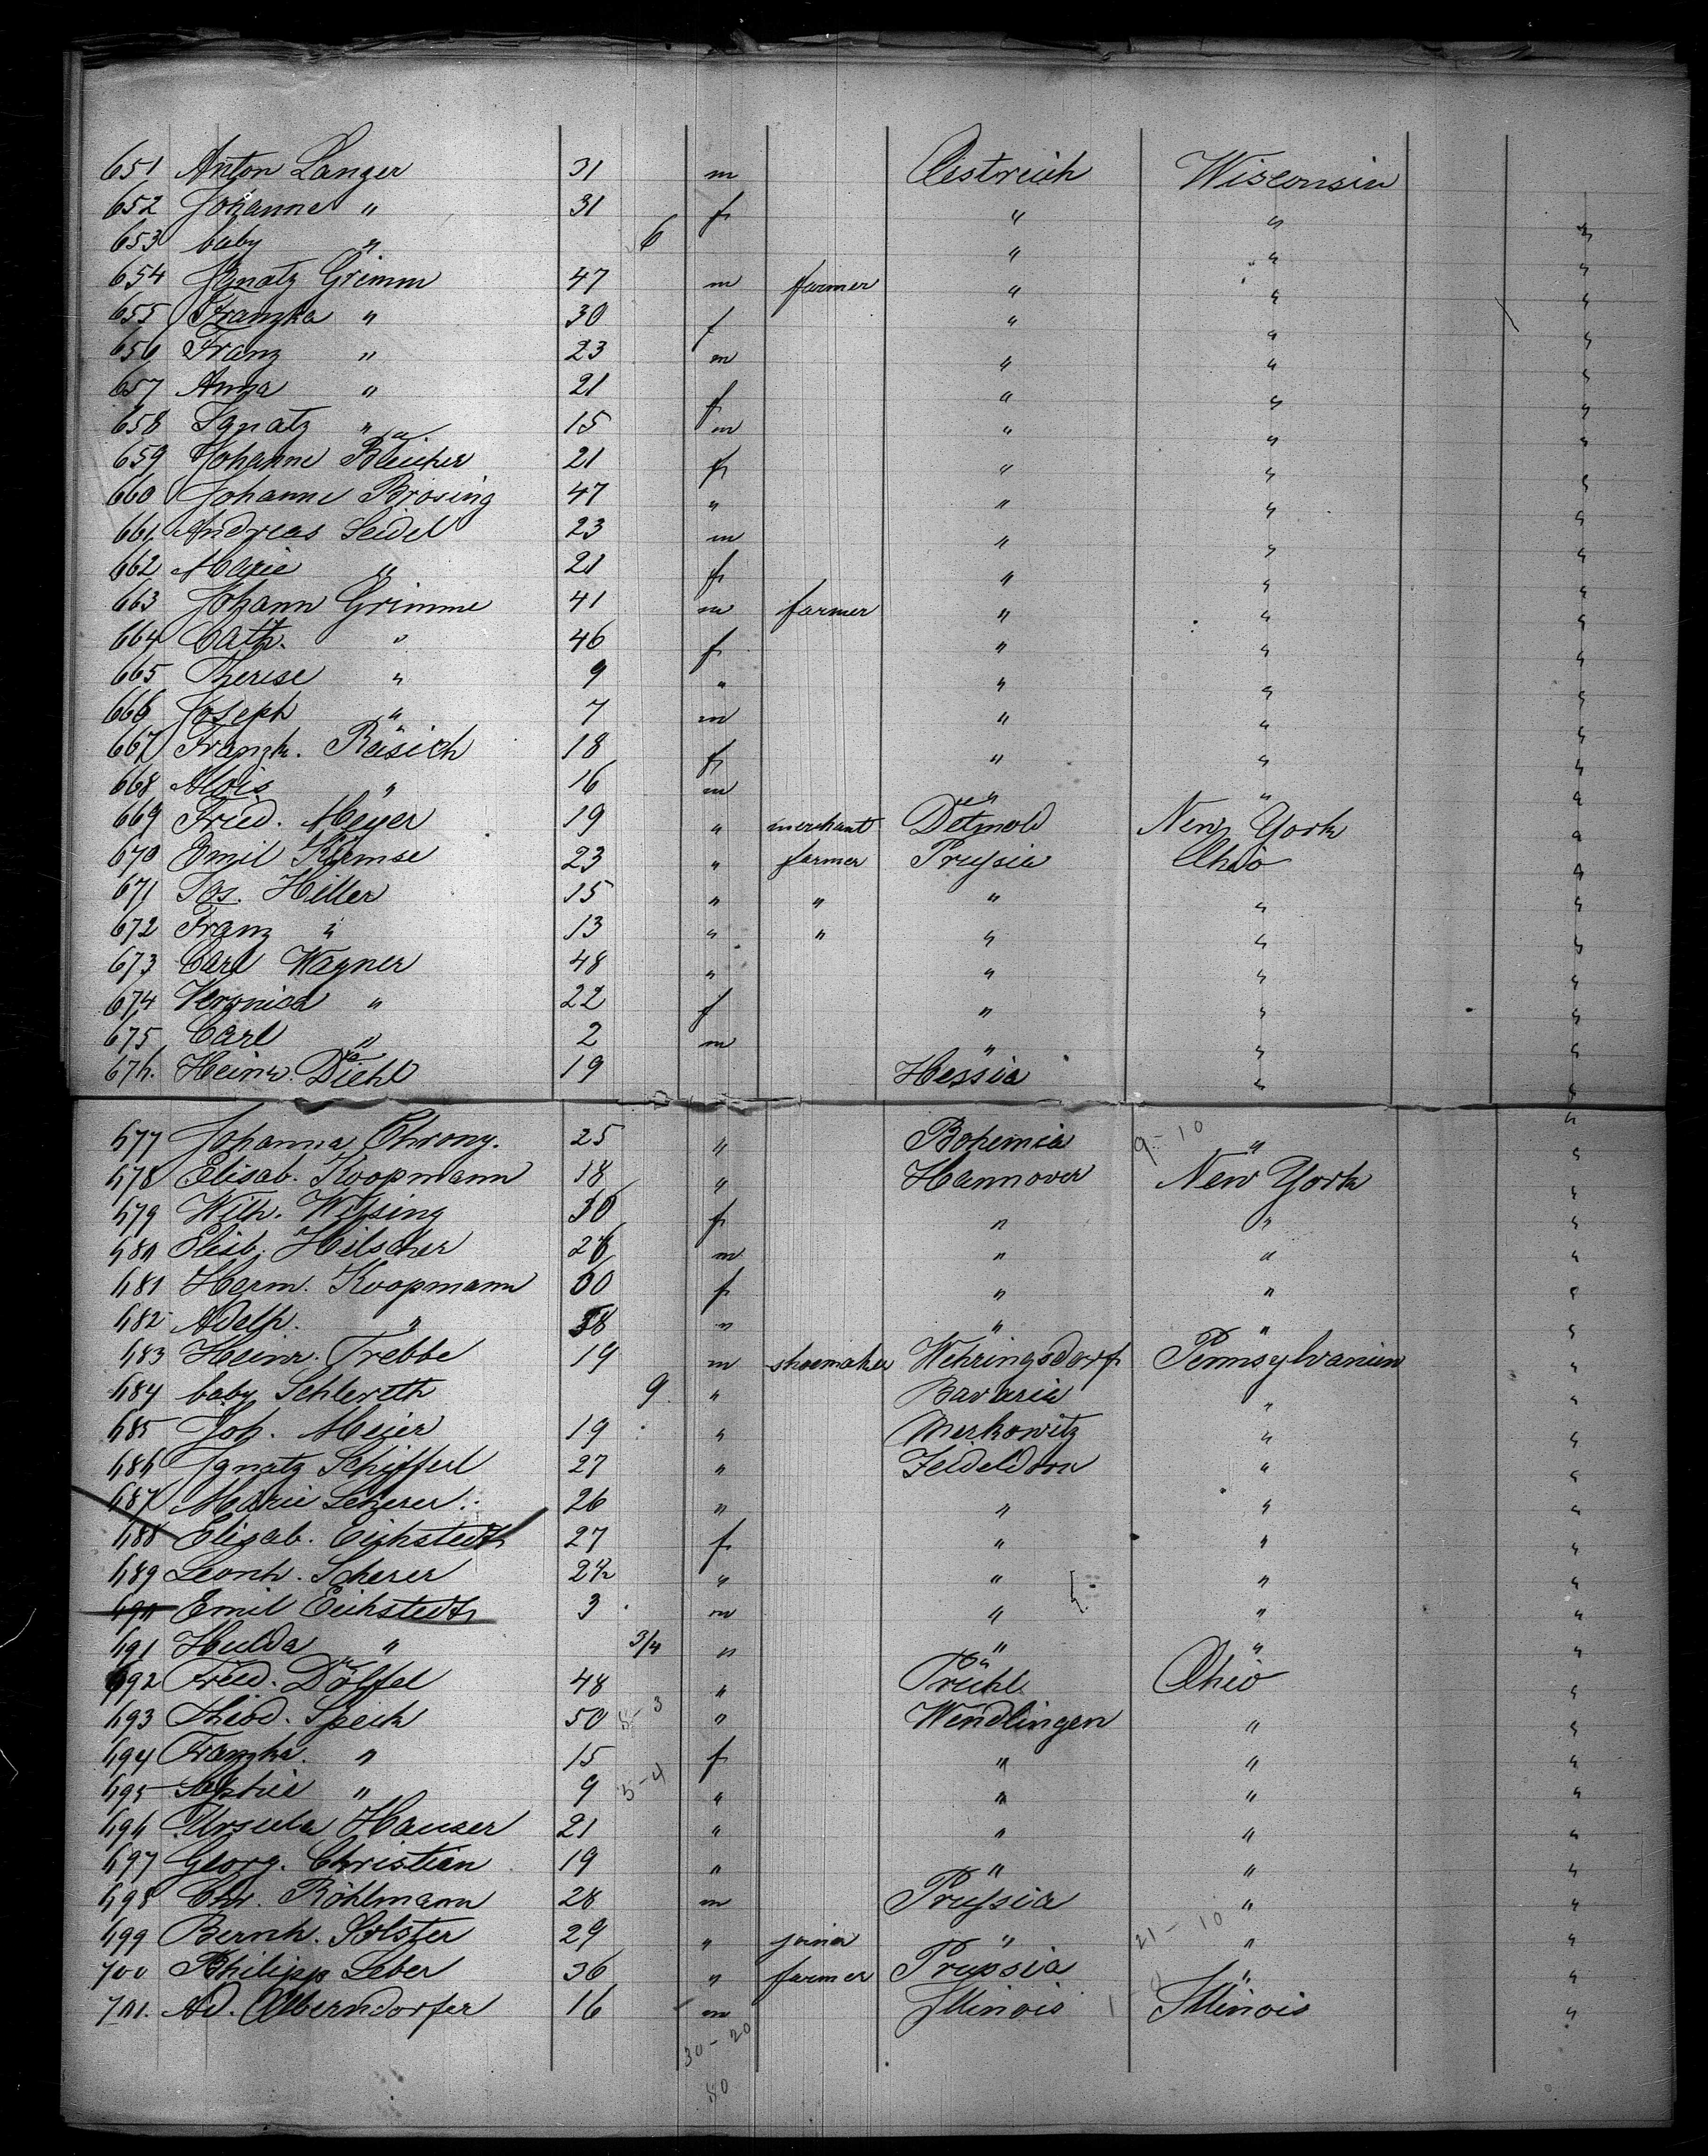 651 Anton Langer 31 m Oestreich Wisconsin
652 Johanne " 31 f " " "
653 baby " 6 " " "
654 Ignatz Grimm 47 m farmer " " "
655 Franzka " 30 f " " "
656 Franz " 23 m " " "
657 Anna " 21 f " " "
658 Ignatz " 15 m " " "
659 Johanne 21 f " " "
660 Johanne Brosing 47 " " " "
661 Andreas Seidel 23 m " " "
662 Marie " 21 f " " "
663 Johann Grimme 41 m farmer " " "
664 Cath. " 46 f " " "
665 Therese " 9 " " " "
666 Joseph " 7 m " " "
667 Franzk. Räsich 18 f " " "
668 Alois " 16 m " " "
669 Fried. Meyer 19 " merchant Detmold New York "
670 Emil Kirmse 23 " farmer Prussia Ohio "
671 Jos. Hiller 15 " " " " "
672 Franz " 13 " " " " "
673 Carl Wagner 48 " " " "
674 Veronica " 22 f " " "
675 Carl " 2 m " " "
676. Heinr. Diehl 19 Hessia " "
677 Johanna Chrony. 25 " Bohemia 9-10 " "
678 Elisab. Koopmann 18 " Hannover New York "
679 Wilh. Wilsing 30 f " " "
680 Elisb. Hilscher 26 m " " "
681 Herm. Koopmann f " " "
682 Adelh. " " " " "
683 Heinr. Trebbe 19 m shoemaker Wehringsdorf Pennsylvanien "
684 baby Schlereth 9 " Bavaria " "
685 Joh. Meier 19 " Merkowitz " "
686 Ignatz Schifferl 27 " Zeideldorn " "
687 Marie Scherer 26 " " " "
688 Elisab. Eichstedt 27 f " " "
689 Leonh. Scherer " " " "
690 Emil Eichstedt 3 m " " "
691 Hulda " 3/4 " " " "
692 Fried. Dölfel 48 " Ohio "
693 Theod. Speck 50 " Wendlingen " "
694 Franzka. " 15 f " " "
695 Sophie " 9 5-4 " " " "
696 Ursula Hauser 21 " " " "
697 Georg. Christian 19 " " " "
698 Chr. Röhlmann 28 m Prussia " "
699 Bernh. Solster 29 " joiner " 21-10 " "
700 Philipp Leber 36 " farmer Prussia " "
701. Ad. Alberndorfer 16 m Illinois Illinois "
30-20